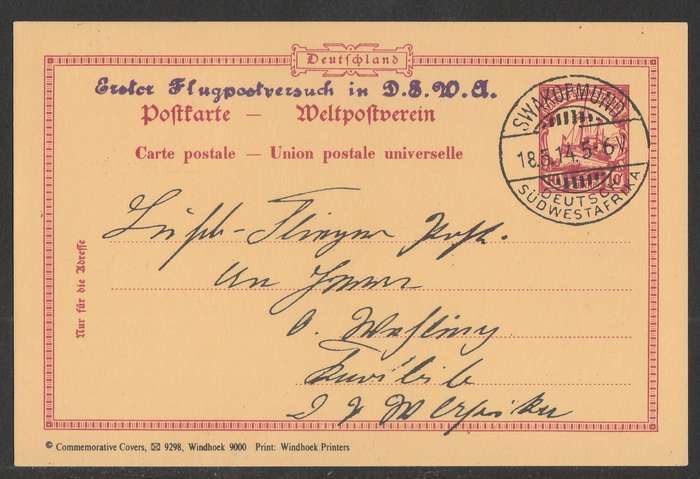 Deutschland
Erster Flugpostversuch in D.S.W.A.
Postkarte — Weltpostverein
Carte postale — Union postale universelle
SWAKOPMUND
18.5.14. 5-6V
DEUTSCH-
SÜDWESTAFRIKA
Nur für die Adresse
Luft-Flieger Post.
An Herrn
Karibib
© Commemorative Covers, ✉ 9298, Windhoek 9000 Print: Windhoek Printers